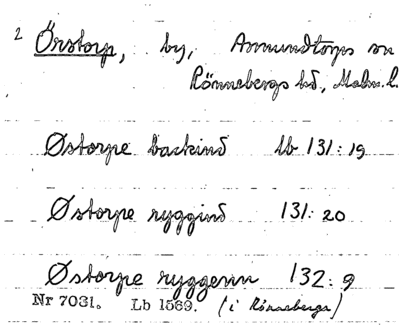 2 Örstorp, by, Asmundtorps sn
Rönnebergs hd, Malm. l.
Østorpe backind lb 131:19
Østorpe ryggind 131:20
Østorpe ryggenn 132:9
Nr 7031. Lb 1569. (i Rönneberga)